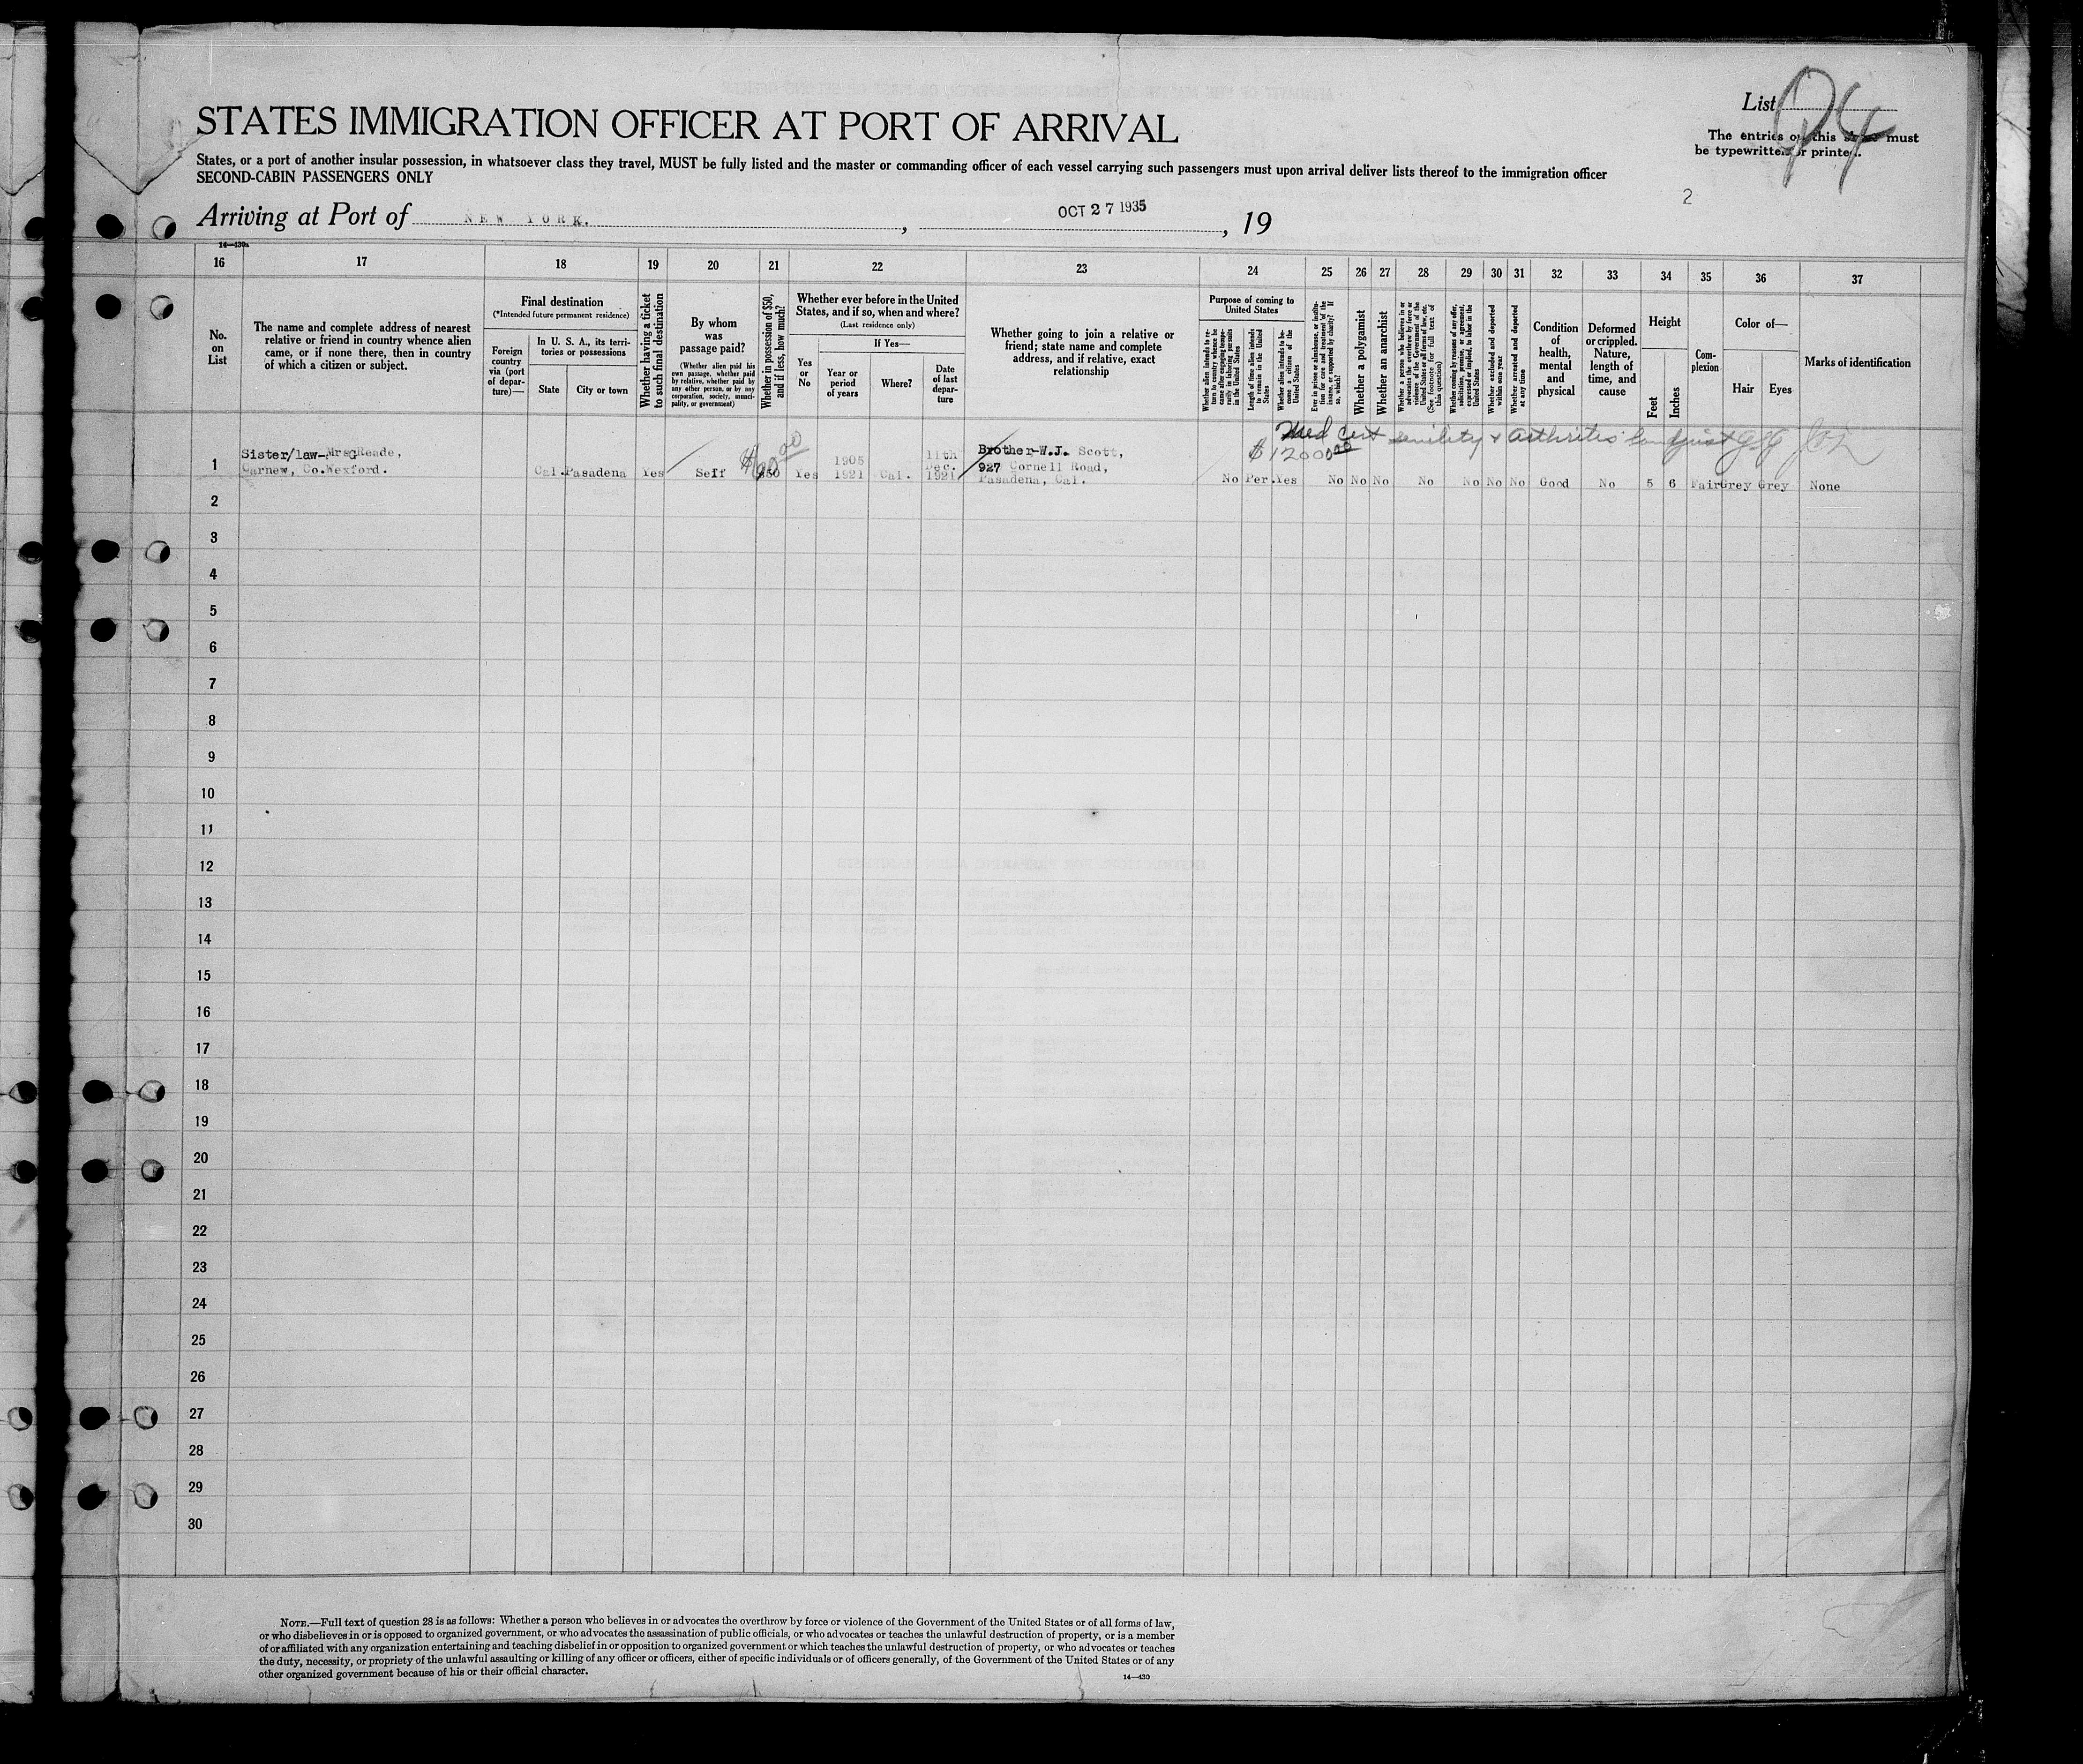 STATES IMMIGRATION OFFICER AT PORT OF ARRIVAL
List
The entries on this must
be typewritten or printed.
States, or a port of another insular possession, in whatsoever class they travel, MUST be fully listed and the master or commanding officer of each vessel carrying such passengers must upon arrival deliver lists thereof to the immigration officer
SECOND-CABIN PASSENGERS ONLY
2
Arriving at Port of NEW YORK. , OCT 27 1935 , 19
16 17 18 19 20 21 22 23 24 25 26 27 28 29 30 31 32 33 34 35 36 37
No. on List
The name and complete address of nearest
relative or friend in country whence alien
came, or if none there, then in country
of which a citizen or subject.
Final destination
(*Intended future permanent residence)
Foreign
country
via (port
of depar-
ture)—
In U. S. A., its terri-
tories or possessions
State
City or town
Whether having a ticket
to such final destination
By whom
was
passage paid?
(Whether alien paid his
own passage, whether paid
by relative, whether paid by
any other person, or by any
corporation, society, munici-
pality, or government)
Whether in possession of $50,
and if less, how much?
Whether ever before in the United
States, and if so, when and where?
(Last residence only)
Yes
or
No
If Yes—
Year or
period
of years
Where?
Date
of last
depar-
ture
Whether going to join a relative or
friend; state name and complete
address, and if relative, exact
relationship
Purpose of coming to
United States
Whether alien intends to re-
turn to country whence he
came after engaging tempo-
rarily in laboring pursuits
in the United States
Length of time alien intends
to remain in the United
States
Whether alien intends to be-
come a citizen of the
United States
Ever in prison or almshouse, or institu-
tion for care and treatment of the
insane, or supported by charity? If
so, which?
Whether a polygamist
Whether an anarchist
Whether a person who believes in or
advocates the overthrow by force or
violence of the Government of the
United States or all forms of law, etc.
(See footnote for full text of
this question)
Whether coming by reasons of any offer,
solicitation, promise, or agreement,
expressed or implied, to labor in the
United States
Whether excluded and deported
within one year
Whether arrested and deported
at any time
Condition
of
health,
mental
and
physical
Deformed
or crippled.
Nature,
length of
time, and
cause
Height
Feet
Inches
Com-
plexion
Color of—
Hair
Eyes
Marks of identification
Med Cert senility & arthritis
$12000 00
1 Sister/law- Mrs G Reade,
Carnew, Co.Wexford.
Cal. Pasadena Yes Self $50 Yes
1905
1921
Cal.
11th
Dec.
1921
Brother-W.J. Scott,
927 Cornell Road,
Pasadena, Cal.
No Per. Yes No No No No No No No Good No 5 6 Fair Grey Grey None
2
3
4
5
6
7
8
9
10
11
12
13
14
15
16
17
18
19
20
21
22
23
24
25
26
27
28
29
30
NOTE.—Full text of question 28 is as follows: Whether a person who believes in or advocates the overthrow by force or violence of the Government of the United States or of all forms of law,
or who disbelieves in or is opposed to organized government, or who advocates the assassination of public officials, or who advocates or teaches the unlawful destruction of property, or is a member
of or affiliated with any organization entertaining and teaching disbelief in or opposition to organized government or which teaches the unlawful destruction of property, or who advocates or teaches
the duty, necessity, or propriety of the unlawful assaulting or killing of any officer or officers, either of specific individuals or of officers generally, of the Government of the United States or of any
other organized government because of his or their official character.
14—430